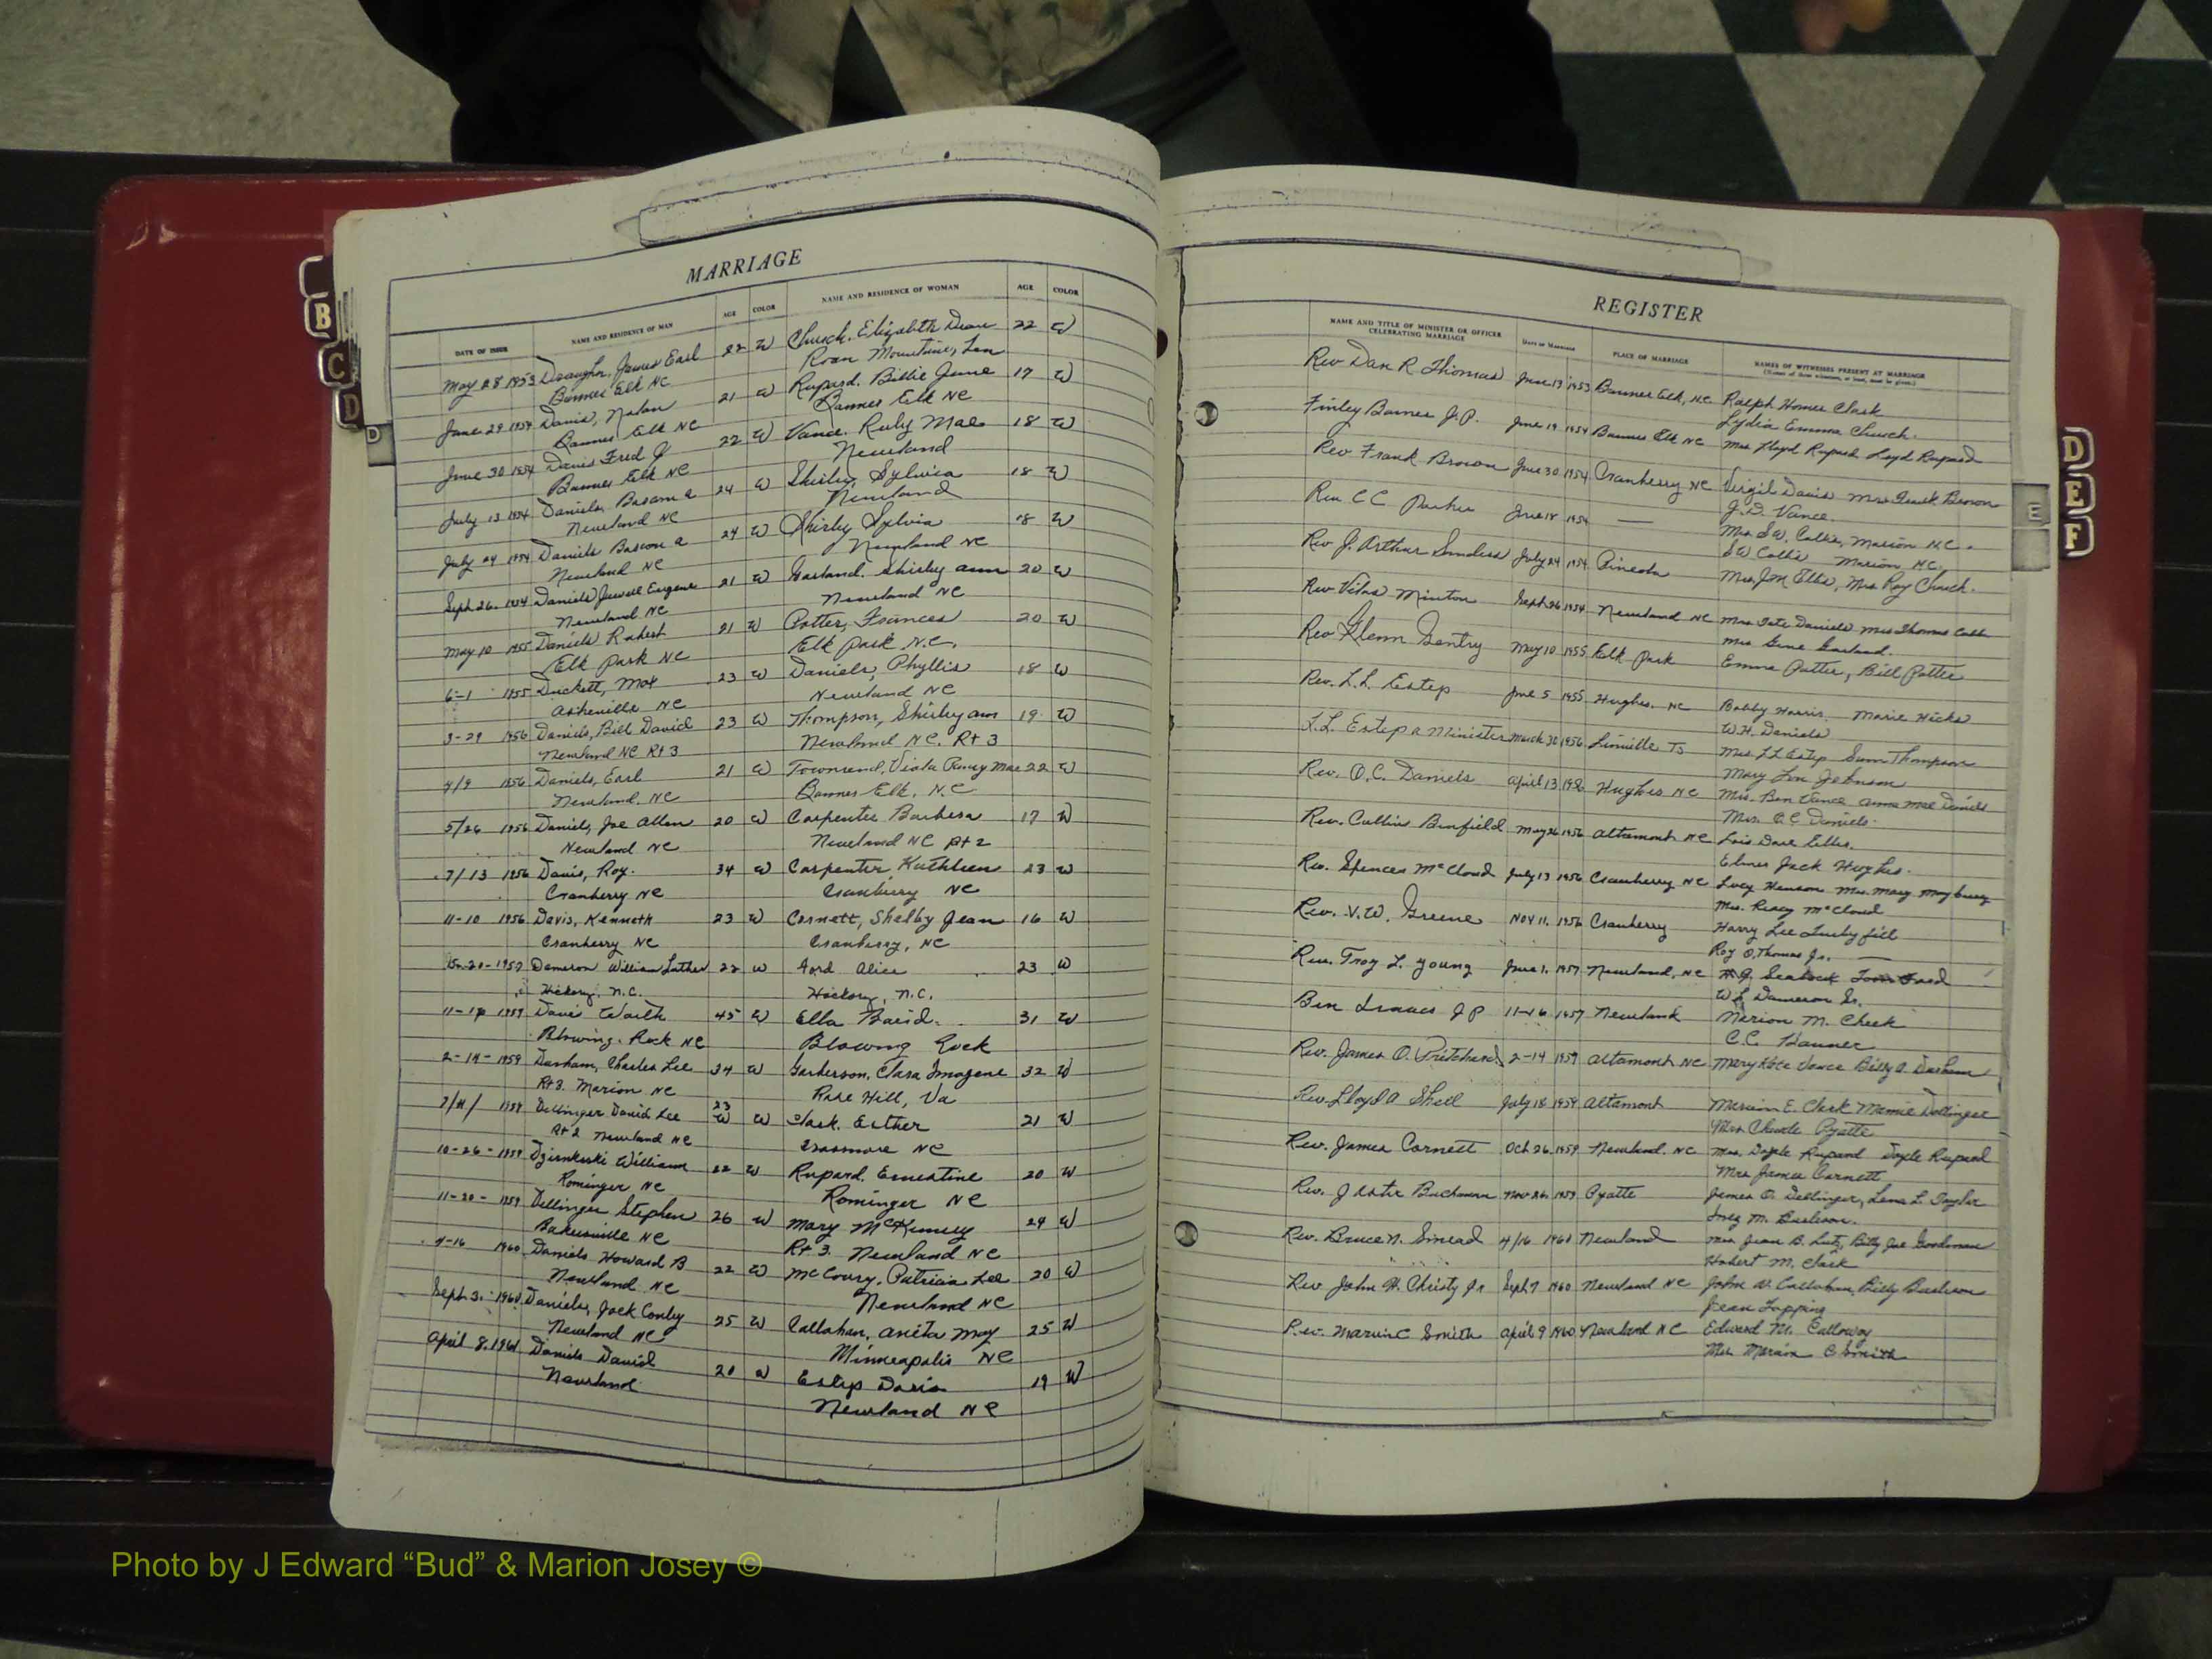 MARRIAGE
DATE OF ISSUE NAME AND RESIDENCE OF MAN AGE COLOR NAME AND RESIDENCE OF WOMAN AGE COLOR
May 28 1953 Draughn, James Earl 22 W Church, Elizabeth Dean 22 W
Banner Elk NC Roan Mountain, Ten
June 29 1954 Davis, Nolan 21 W Rupard, Billie June 17 W
Banner Elk NC Banner Elk NC
June 30 1954 Davis Fred J 22 W Vance, Ruby Mae 18 W
Banner Elk NC Newland
July 13 1954 Daniels, Bascom A 24 W Shirley, Sylvia 18 W
Newland NC Newland
July 24 1954 Daniels Bascom A 24 W Shirley Sylvia 18 W
Newland NC Newland NC
Sept 26, 1954 Daniels Jewell Eugene 21 W Garland, Shirley Ann 20 W
Newland NC Newland NC
May 10 1955 Daniels Robert 21 W Potter, Frances 20 W
Elk Park NC Elk Park N.C.
6-1 1955 Duckett, Max 23 W Daniels, Phyllis 18 W
Asheville NC Newland NC
3-29 1956 Daniels, Bill David 23 W Thompson, Shirley Ann 19 W
Newland NC Rt 3 Newland NC. Rt 3
4/9 1956 Daniels, Earl 21 W Townsend, Viola Mae 22 W
Newland, NC Banner Elk, N.C
5/26 1956 Daniels, Joe Allen 20 W Carpenter Barbara 17 W
Newland NC Newland NC Rt 2
7/13 1956 Davis, Roy. 34 W Carpenter, Kathleen 23 W
Cranberry NC Cranberry NC
11-10 1956 Davis, Kenneth 23 W Cornett, Shelby Jean 16 W
Cranberry NC Cranberry, NC
20-1957 Dameron William Luther 22 W Ford Alice 23 W
Hickory, N.C. Hickory, N.C.
11-14 1959 Davis 45 W Ella Baird. 31 W
Blowing Rock NC Blowing Rock
2-14-1959 Durham, Charles Lee 34 W Garberson, Clara Imogene 32 W
Rt 3. Marion NC Rose Hill, Va
1959 Dellinger David Lee 23 W W Clark, Esther 21 W
Rt 2 Newland NC Crossnore NC
10-26-1959 William 22 W Rupard, Ernestine 20 W
Rominger NC Rominger NC
11-20-1959 Dellinger Stephen 26 W Mary McKinney 24 W
Bakersville NC Rt 3. Newland NC
4-16 1960 Daniels Howard B 22 W McCoury, Patricia Lee 20 W
Newland NC Newland NC
Sept 3. 1960 Daniels, Jack Conley 25 W Callahan, Anita May 25 W
Newland NC Minneapolis NC
April 8, 1961 Daniels David 20 W Estep Doris 19 W
Newland Newland NC
REGISTER
NAME AND TITLE OF MINISTER OR OFFICER CELEBRATING MARRIAGE DATE OF MARRIAGE PLACE OF MARRIAGE NAMES OF WITNESSES PRESENT AT MARRIAGE
Rev Dan R Thomas June 13 1953 Banner Elk, N.C Ralph Homer Clark
Lydia Emma Church.
Finley Banner J.P. June 19 1954 Banner Elk NC Mrs Floyd Rupard Loyd Rupard
Rev Frank Brown June 30 1954 Cranberry NC Virgil Davis Mrs Frank Brown
J.D. Vance.
Rev. C C Parker June 18 1954 — Mrs S.W. Collis, Marion N.C.
S W Collis Marion, N.C.
Rev J. Arthur July 24 1954 Pineola Mrs J.M. Ellis, Mrs. Roy Church.
Rev. Vilas Minton Sept 26 1954 Newland NC Mrs. Tate Daniels Mrs Thomas
Mrs Gene Garland.
Rev Glenn Gentry May 10 1955 Elk Park Emma Potter, Bill Potter
Rev. L.L. Estep June 5 1955 Hughes, NC Bobby Harris, Marie Hicks
W.H. Daniels
L.L. Estep a Minister March 30 1956 Linville Ts Mrs. L L Estep Sam Thompson
Mary Lou Johnson
Rev. O.C. Daniels April 13 1956 Hughes NC Mrs. Ben Vance Anna Mae Daniels
Mrs. O.C Daniels.
Rev. Cullin Benfield May 26 1956 Altamont NC Lois Dare Ellis.
Elmer Jack Hughes.
Rev. Spencer McCloud July 13 1956 Cranberry NC Lucy Henson Mrs. Mary
Mrs. McCloud
Rev. V.W. Greene Nov 11, 1956 Cranberry Harry Lee
Roy O. Thomas Jr.
Rev. Troy L. Young June 1. 1957 Newland, NC Tom Ford
W L Dameron Sr.
Ben J P 11-16 1957 Newland Marion M. Cheek
C.C.
Rev. James O. Pritchard 2-14 1959 Altamont NC Mary Kate Vance Billy A. Durham
Rev. Lloyd A Shell July 18 1959 Altamont Marion E. Clark Mamie Dellinger
Mrs. Charle Pyatte
Rev. James Cornett Oct 26, 1959 Newland, NC Mrs. Doyle Rupard Doyle Rupard
Mrs James Cornett
Rev. J Buchanan Nov 26, 1959 Pyatte James O. Dellinger, Lena L. Taylor
M. Burleson.
Rev. Bruce N. 4/16 1960 Newland Mrs Jean B. Lutz, Billy Joe Goodman
Hubert M. Clark
Rev John H. Christy Jr Sept 7 1960 Newland NC John W. Callahan, Billy Burleson
Jean Topping
Rev. Marvin C Smith April 9 1960 Newland NC Edward M. Calloway
Mrs Marvin C Smith
B
C
D
D
D
E
F
E
Photo by J Edward “Bud” & Marion Josey ©